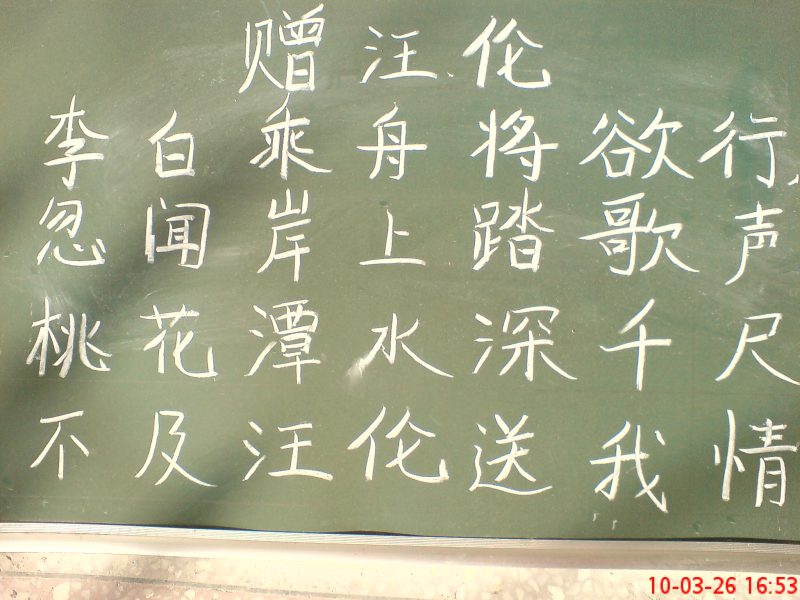 赠汪伦
李白乘舟将欲行,
忽闻岸上踏歌声
桃花潭水深千尺
不及汪伦送我情
10-03-26 16:53